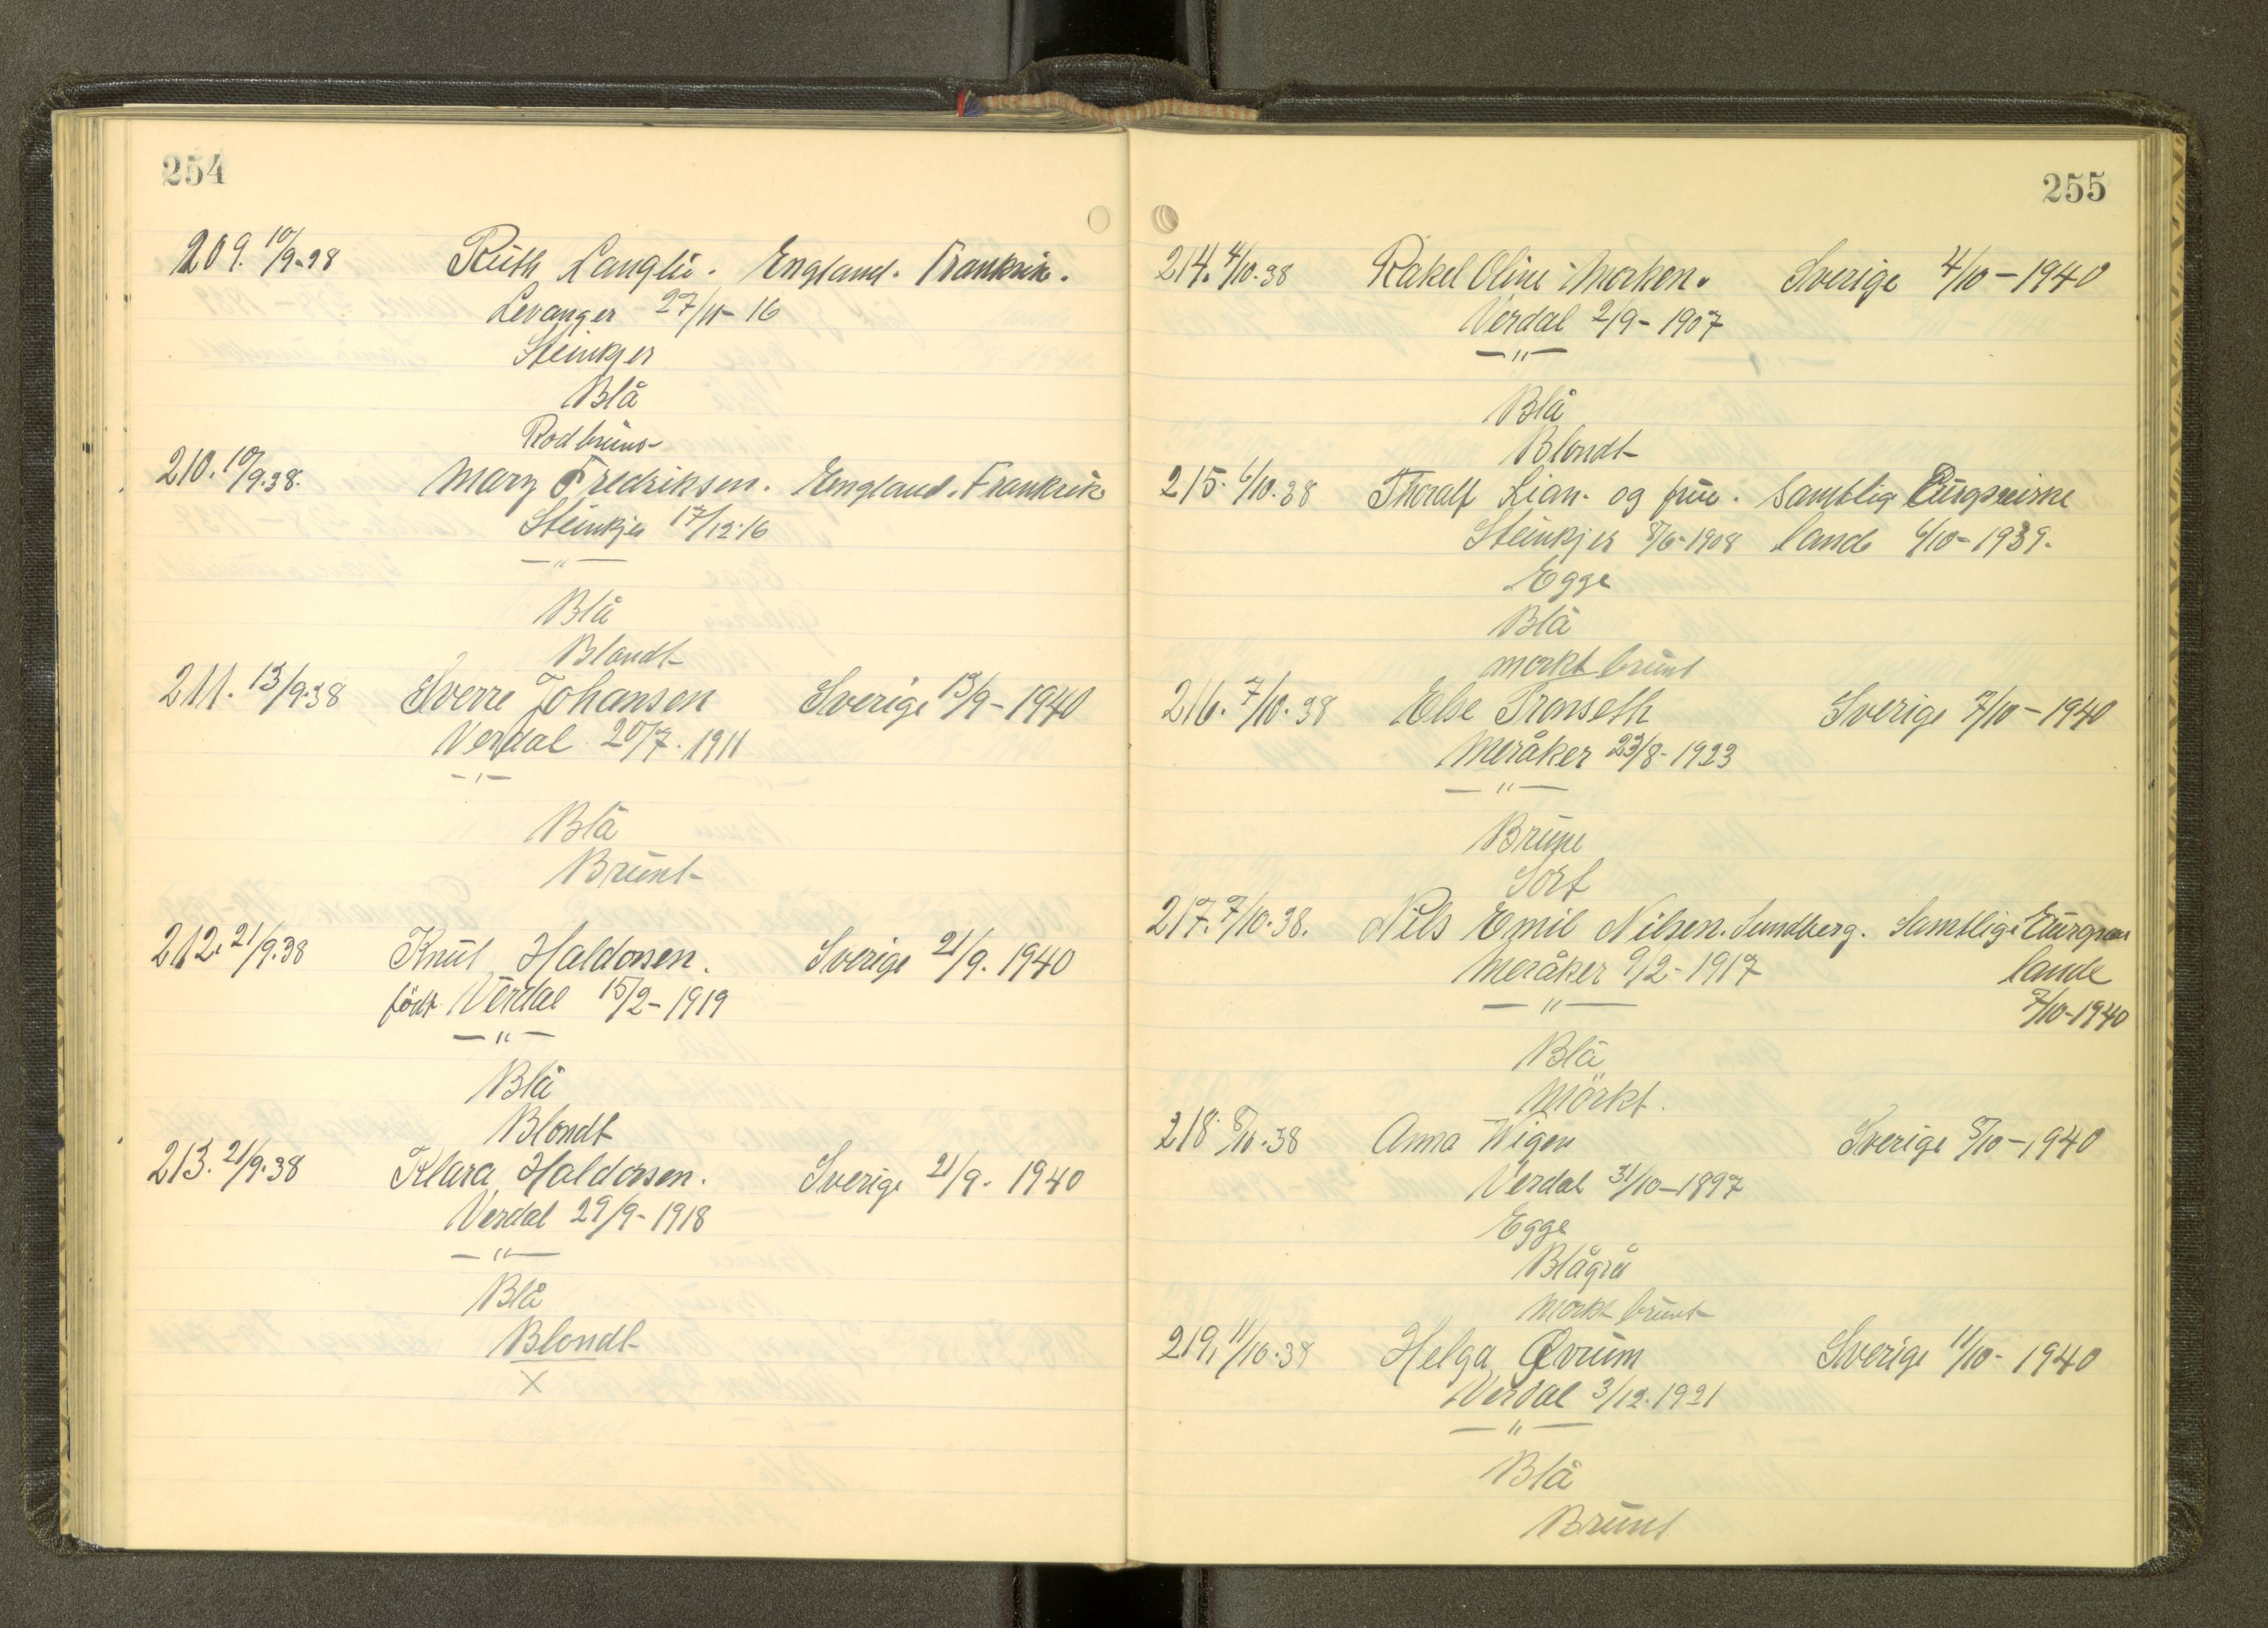 254
209. 10/9-38 Ruth Langli. England. Frankrik.
Levanger 27/11-16
Steinkjer
Blå
Rødbrune
210. 10/9.38. Mary Fredriksen. England. Frankrik
Steinkjer 17/12-16
—"—
Blå
Blondt
211. 13/9-38 Sverre Johansen Sverige 13/9-1940
Verdal 20/7. 1911
—"—
Blå
Brunt
212. 21/9.38 Knut Haldorsen. Sverige 21/9. 1940
födt Verdal 15/2-1919
—"—
Blå
Blondt
213. 21/9.38 Klara Haldorsen. Sverige 21/9. 1940
Verdal 29/9-1918
—"—
Blå
Blondt
X
255
214. 4/10.38 Rakel Oline Morken. Sverige 4/10-1940
Verdal 2/9-1907
—"—
Blå
Blondt
215. 6/10.38 Thoralf Lian. og frue. Samtlig Europeiske
Steinkjer 8/6-1908 lande 6/10-1939.
Egge
Blå
morkt brunt
216. 7/10.38 Else Tronseth Sverige 7/10-1940
Meråker 23/8-1923
—"—
Brune
Sort
217. 7/10.38. Nils Emil Nilsen. Sundberg. Samtlige
Meråker 9/2-1917 lande
—"— 7/10-1940
Blå
Mörkt.
218. 8/10.38 Anna Wigen Sverige 8/10-1940
Verdal 31/10-1897
Egge
Blågrå
Morkt brunt
219. 11/10.38 Helga Øvrum Sverige 11/10-1940
Verdal 3/12.1921
—"—
Blå
Brunt